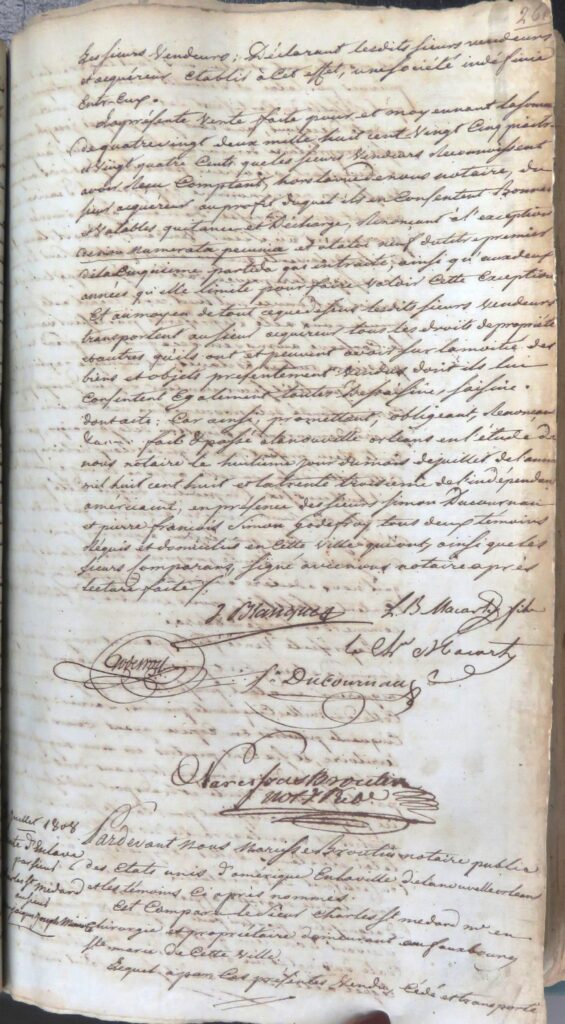 261
les sieurs Vendeurs; Déclarant lesdits sieurs vendeurs
et acquéreur Etablis à cet effet, une société indéfinie
Entr-Eux.
La présente Vente faite pour et moyennant la somme
de quatre vingt deux mille huit cent Vingt Cinq piastres
et Vingt quatre Cents que les sieurs Vendeurs Reconnaissent
avoir Reçu Comptant, hors la vue de nous notaire, du
sieur acquereur au profit duquel ils en Consentent Bonnes
et Valables quitance et Décharge, Renonçant à l'exception
de non numerata pecunia et à la loi neuf du titre premier
de la Cinquieme partida qui en traite, ainsi qu'aux deux
années qu'elle limite pour faire Valoir Cette Exception
Et au moyen de tout ce que dessus lesdits sieurs Vendeurs
transportent au sieur acquéreur tous les droits de propriété
et autres qu'ils ont et peuvent avoir sur la moitié des
biens et objets présentement Vendus dont ils lui
Consentent Egalement toutes Dessaisine, saisine.
dont acte: Car ainsi, promettant, obligeant, Renonçant
fait & passé à la nouvelle orléans en l'étude de
nous notaire le huitieme jour du mois de juillet de l'année
mil huit cent huit et la trente troisieme de l'indépendance
américaine, en présence des sieurs Simon Ducournau
et pierre françois Simon godefroy tous deux temoins
Requis et domiciliés en Cette Ville qui ont, ainsi que les
sieurs Comparans, signé avec nous notaire après
lecture faite.
J. Blanque L. B. Macarty fils
le Ch. Macarty
Godefroy
S. Ducournau
Narcisse Broutin
not. Pub.
juillet 1808
Vente d'Esclave
par sieur
Charles St. Medard
au sieur
Pardevant Nous Narcisse Broutin notaire public
des Etats unis d'amérique En la ville de la nouvelle orléans
et les témoins Ci après nommés.
Est Comparu le sieur Charles St. medard me. en
Chirurgie et propriétaire demeurant au faubourg
Ste. marie de Cette Ville
Lequel a par Ces présentes Vendu, Cédé et transporté